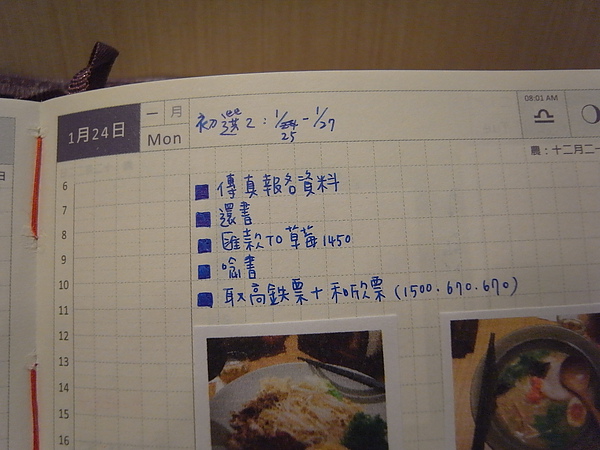 1月24日
一 月
Mon
初選2：1/24 - 1/27
25
08:01 AM
農：十二月二十一
日
6
傳真報名資料
7
還書
8
匯款TO草莓1450
9
10
取高鉄票+和欣票(1500.670.670)
11
12
13
14
15
16